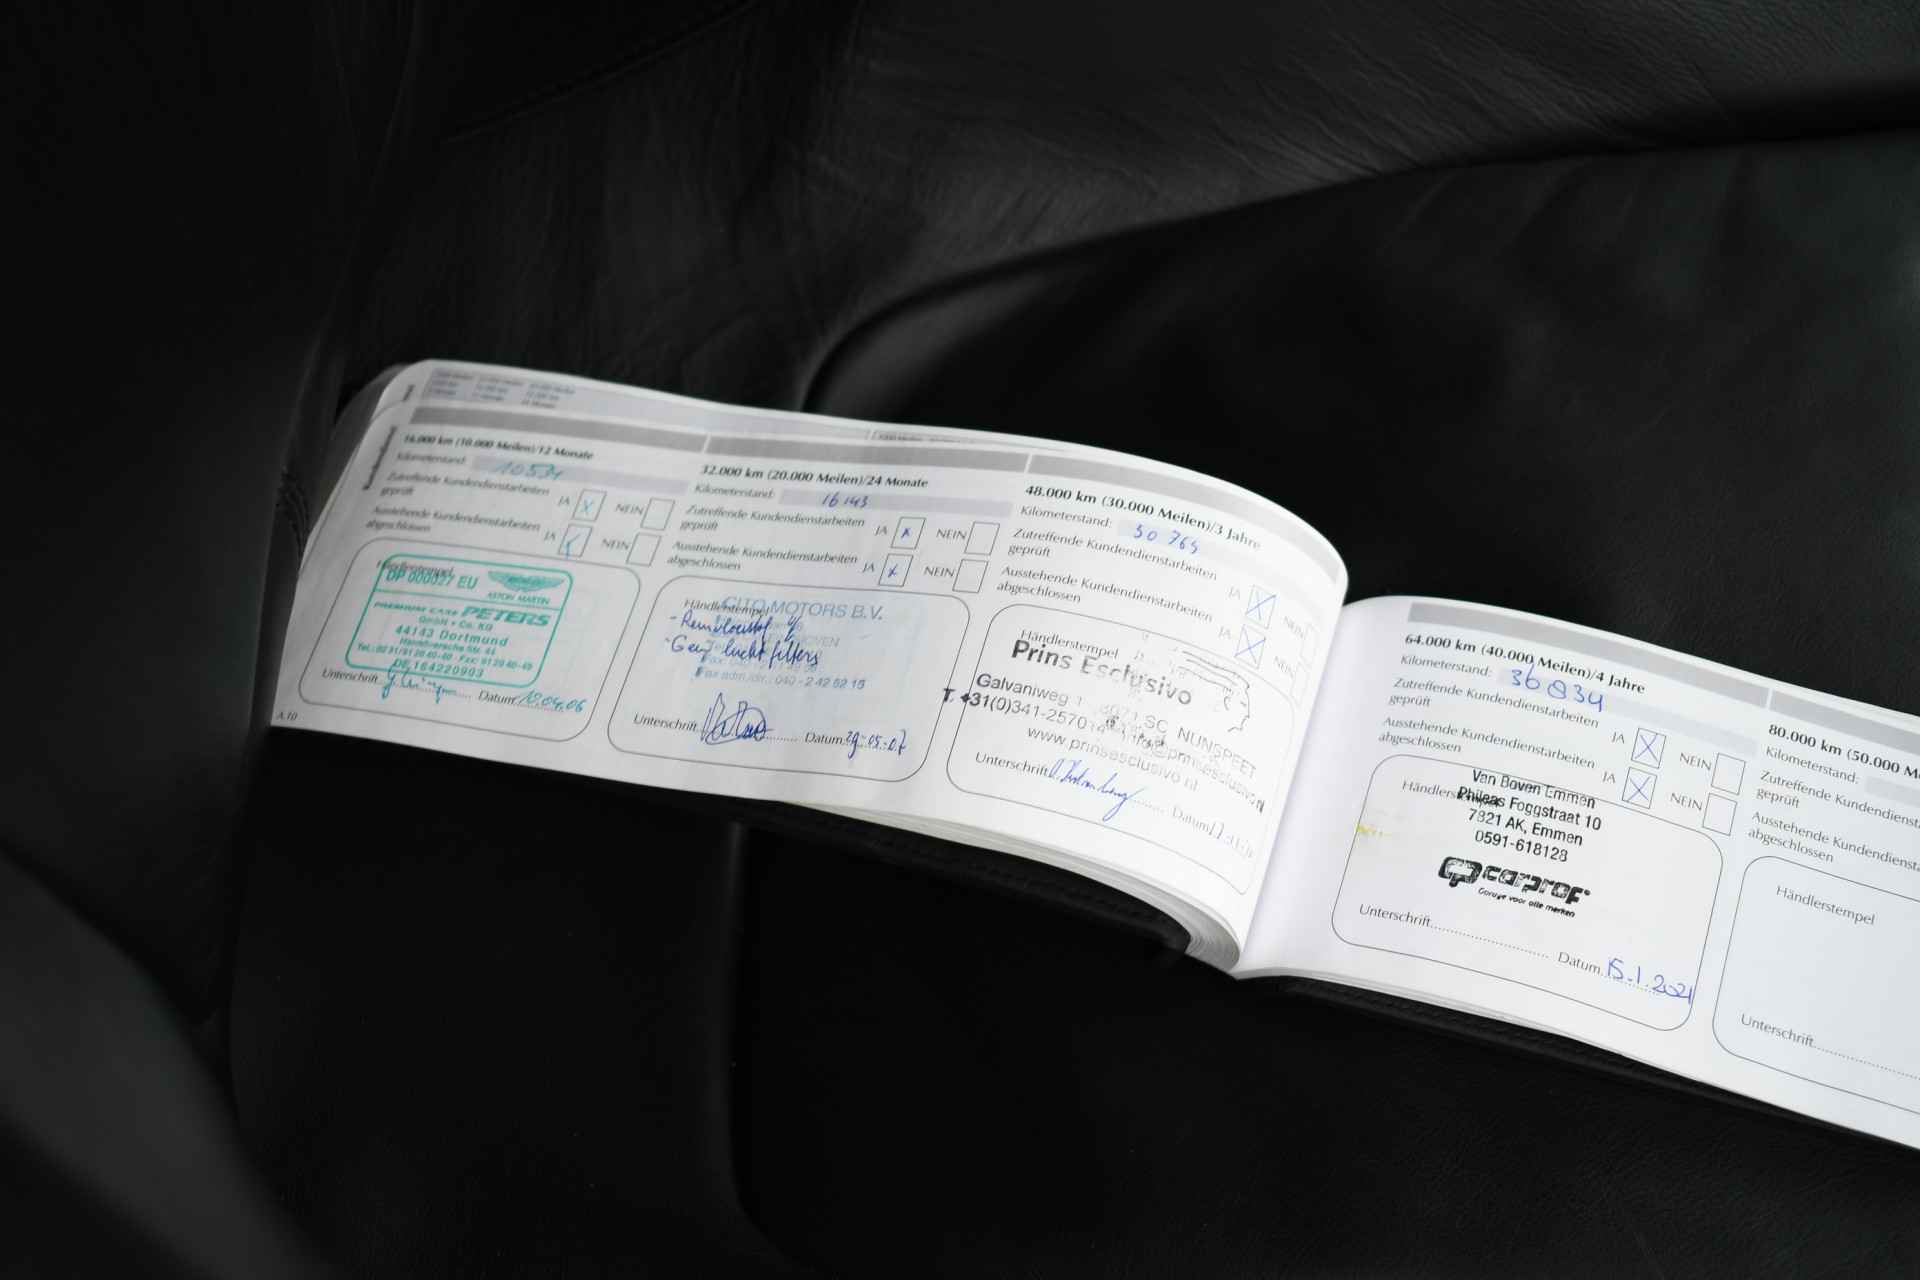 16.000 km (10.000 Meilen)/12 Monate
Kilometerstand: 10534
Zutreffende Kundendienstarbeiten
geprüft
JA X NEIN
Ausstehende Kundendienstarbeiten
abgeschlossen
JA NEIN
Händlerstempel
DP 000027 EU
ASTON MARTIN
PREMIUM CARS PETERS
GmbH + Co. KG
44143 Dortmund
Hannöversche Str. 44
DE 164220903
Unterschrift
Datum 10.04.06
A.10
32.000 km (20.000 Meilen)/24 Monate
Kilometerstand: 16143
Zutreffende Kundendienstarbeiten
geprüft
JA x NEIN
Ausstehende Kundendienstarbeiten
abgeschlossen
JA x NEIN
Händlerstempel
CITO MOTORS B.V.
- Remvloeistof
- luchtfilters
Fax adm./dir.: 040 - 2 42 52 15
Unterschrift
Datum 29-05-07
48.000 km (30.000 Meilen)/3 Jahre
Kilometerstand: 30 765
Zutreffende Kundendienstarbeiten
geprüft
JA X NEIN
Ausstehende Kundendienstarbeiten
abgeschlossen
JA X NEIN
Händlerstempel
Prins Esclusivo
Galvaniweg 1 8071 SC NUNSPEET
T. +31(0)341-2570
www.prinsesclusivo.nl
Unterschrift
Datum
64.000 km (40.000 Meilen)/4 Jahre
Kilometerstand: 36834
Zutreffende Kundendienstarbeiten
geprüft
JA X NEIN
Ausstehende Kundendienstarbeiten
abgeschlossen
JA X NEIN
Van Boven Emmen
Phileas Foggstraat 10
7821 AK, Emmen
0591-618128
carprof
Garage voor alle merken
Unterschrift
Datum 15-1-2021
80.000 km (50.000
Kilometerstand:
Zutreffende
geprüft
Ausstehende
abgeschlossen
Händlerstempel
Unterschrift